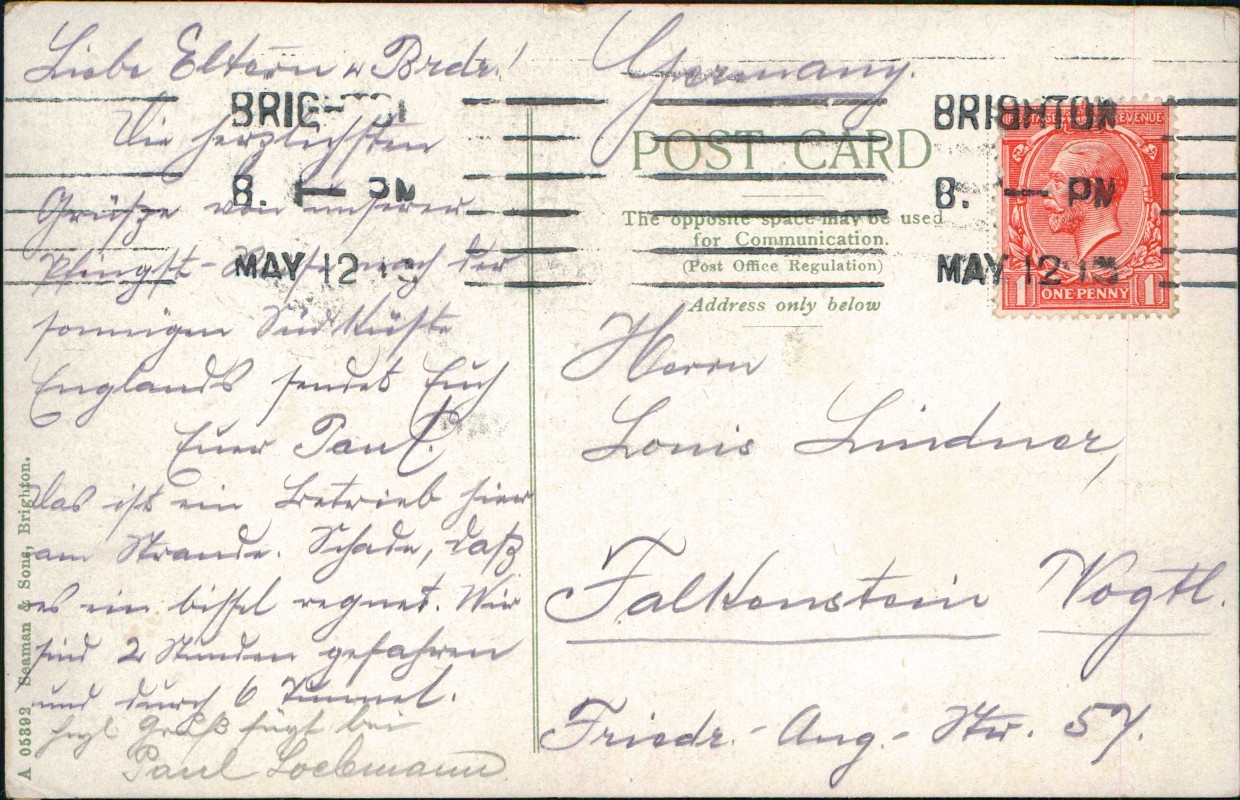 Liebe Eltern u Brdr.!
Die herzlichsten
Grüsze von unserer
Pfingst- nach der
sonnigen Süd Küste
Englands sendet Euch
Euer Paul.
Das ist ein Betrieb hier
am Strande. Schade, daß
es ein bissel regnet. Wir
sind 2 Stunden gefahren
und durch 6 Tunnel.
hzl Gruß fügt bei
Paul Lochmann
A 05392 Seaman & Sons, Brighton.
BRIGHTON
8. PM
MAY 12 13
Germany.
POST CARD
The opposite space may be used
for Communication.
(Post Office Regulation)
Address only below
BRIGHTON
8. PM
MAY 12 13
POSTAGE REVENUE
1 ONE PENNY 1
Herrn
Louis Lindner,
Falkenstein Vogtl.
Friedr.-Aug.-Str. 57.